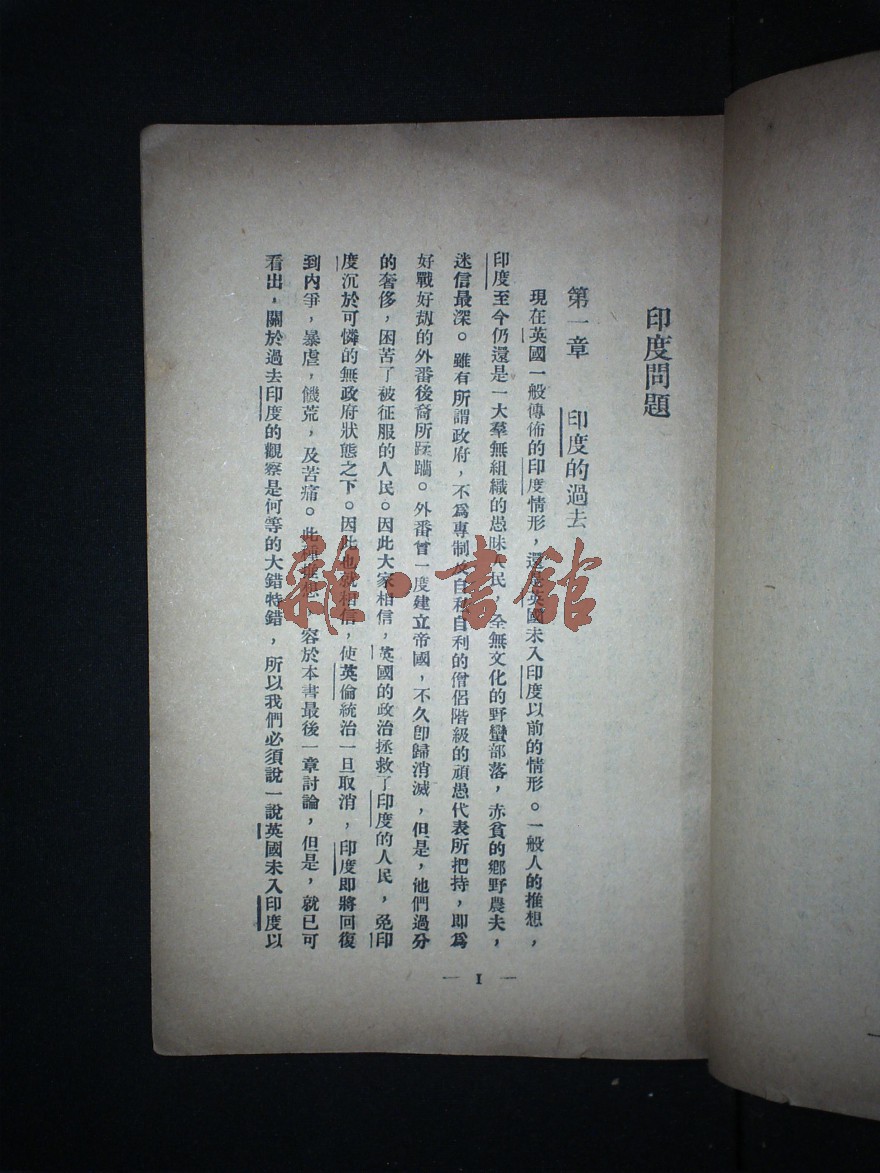 印度問題
第一章 印度的過去
現在英國一般傳佈的印度情形，還是英國未入印度以前的情形。一般人的推想，
印度至今仍還是一大羣無組織的愚昧人民，全無文化的野蠻部落，赤貧的鄉野農夫，
迷信最深。雖有所謂政府，不爲專制及自私自利的僧侶階級的頑愚代表所把持，即爲
好戰好刼的外番後裔所蹂躪。外番曾一度建立帝國，不久卽歸消滅，但是，他們過分
的奢侈，困苦了被征服的人民。因此大家相信，英國的政治拯救了印度的人民，免印
度沉於可憐的無政府狀態之下。因此也就相信，使英倫統治一旦取消，印度即將回復
到內爭，暴虐，饑荒，及苦痛。此種推想，容於本書最後一章討論，但是，就已可
看出，關於過去印度的觀察是何等的大錯特錯，所以我們必須說一說英國未入印度以
— 1 —
雜·書館